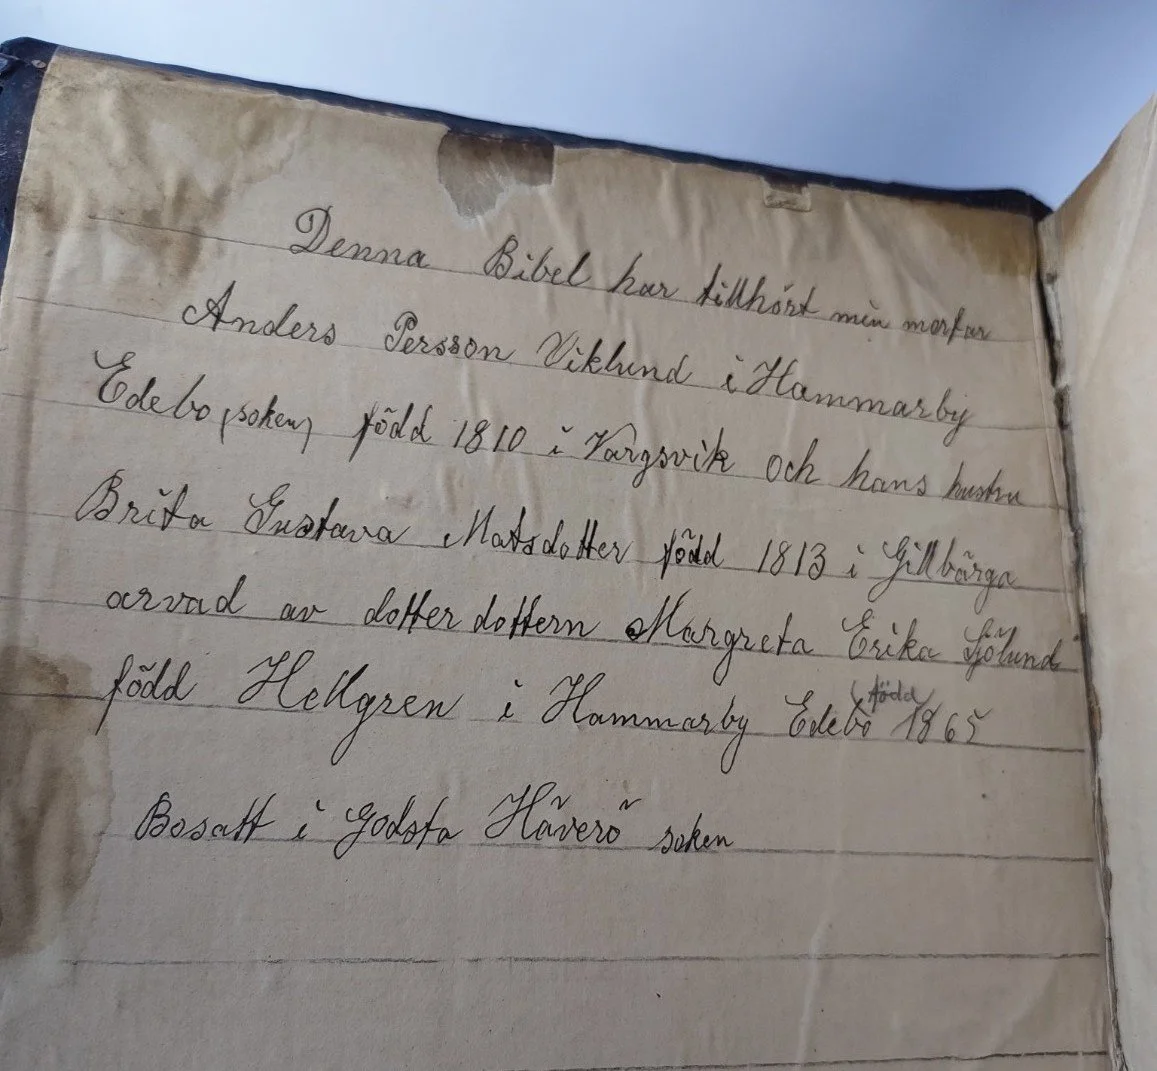 Denna Bibel har tillhört min morfar
Anders Persson Viklund i Hammarby
Edebo (soken) född 1810 i Vargsvik och hans hustru
Brita Gustava Matsdotter född 1813 i Gillbärga
arvad av dotterdottern Margreta Erika Sjölund
född Hellgren i Hammarby Edebo (född) 1865
Bosatt i Godsta Häverö soken